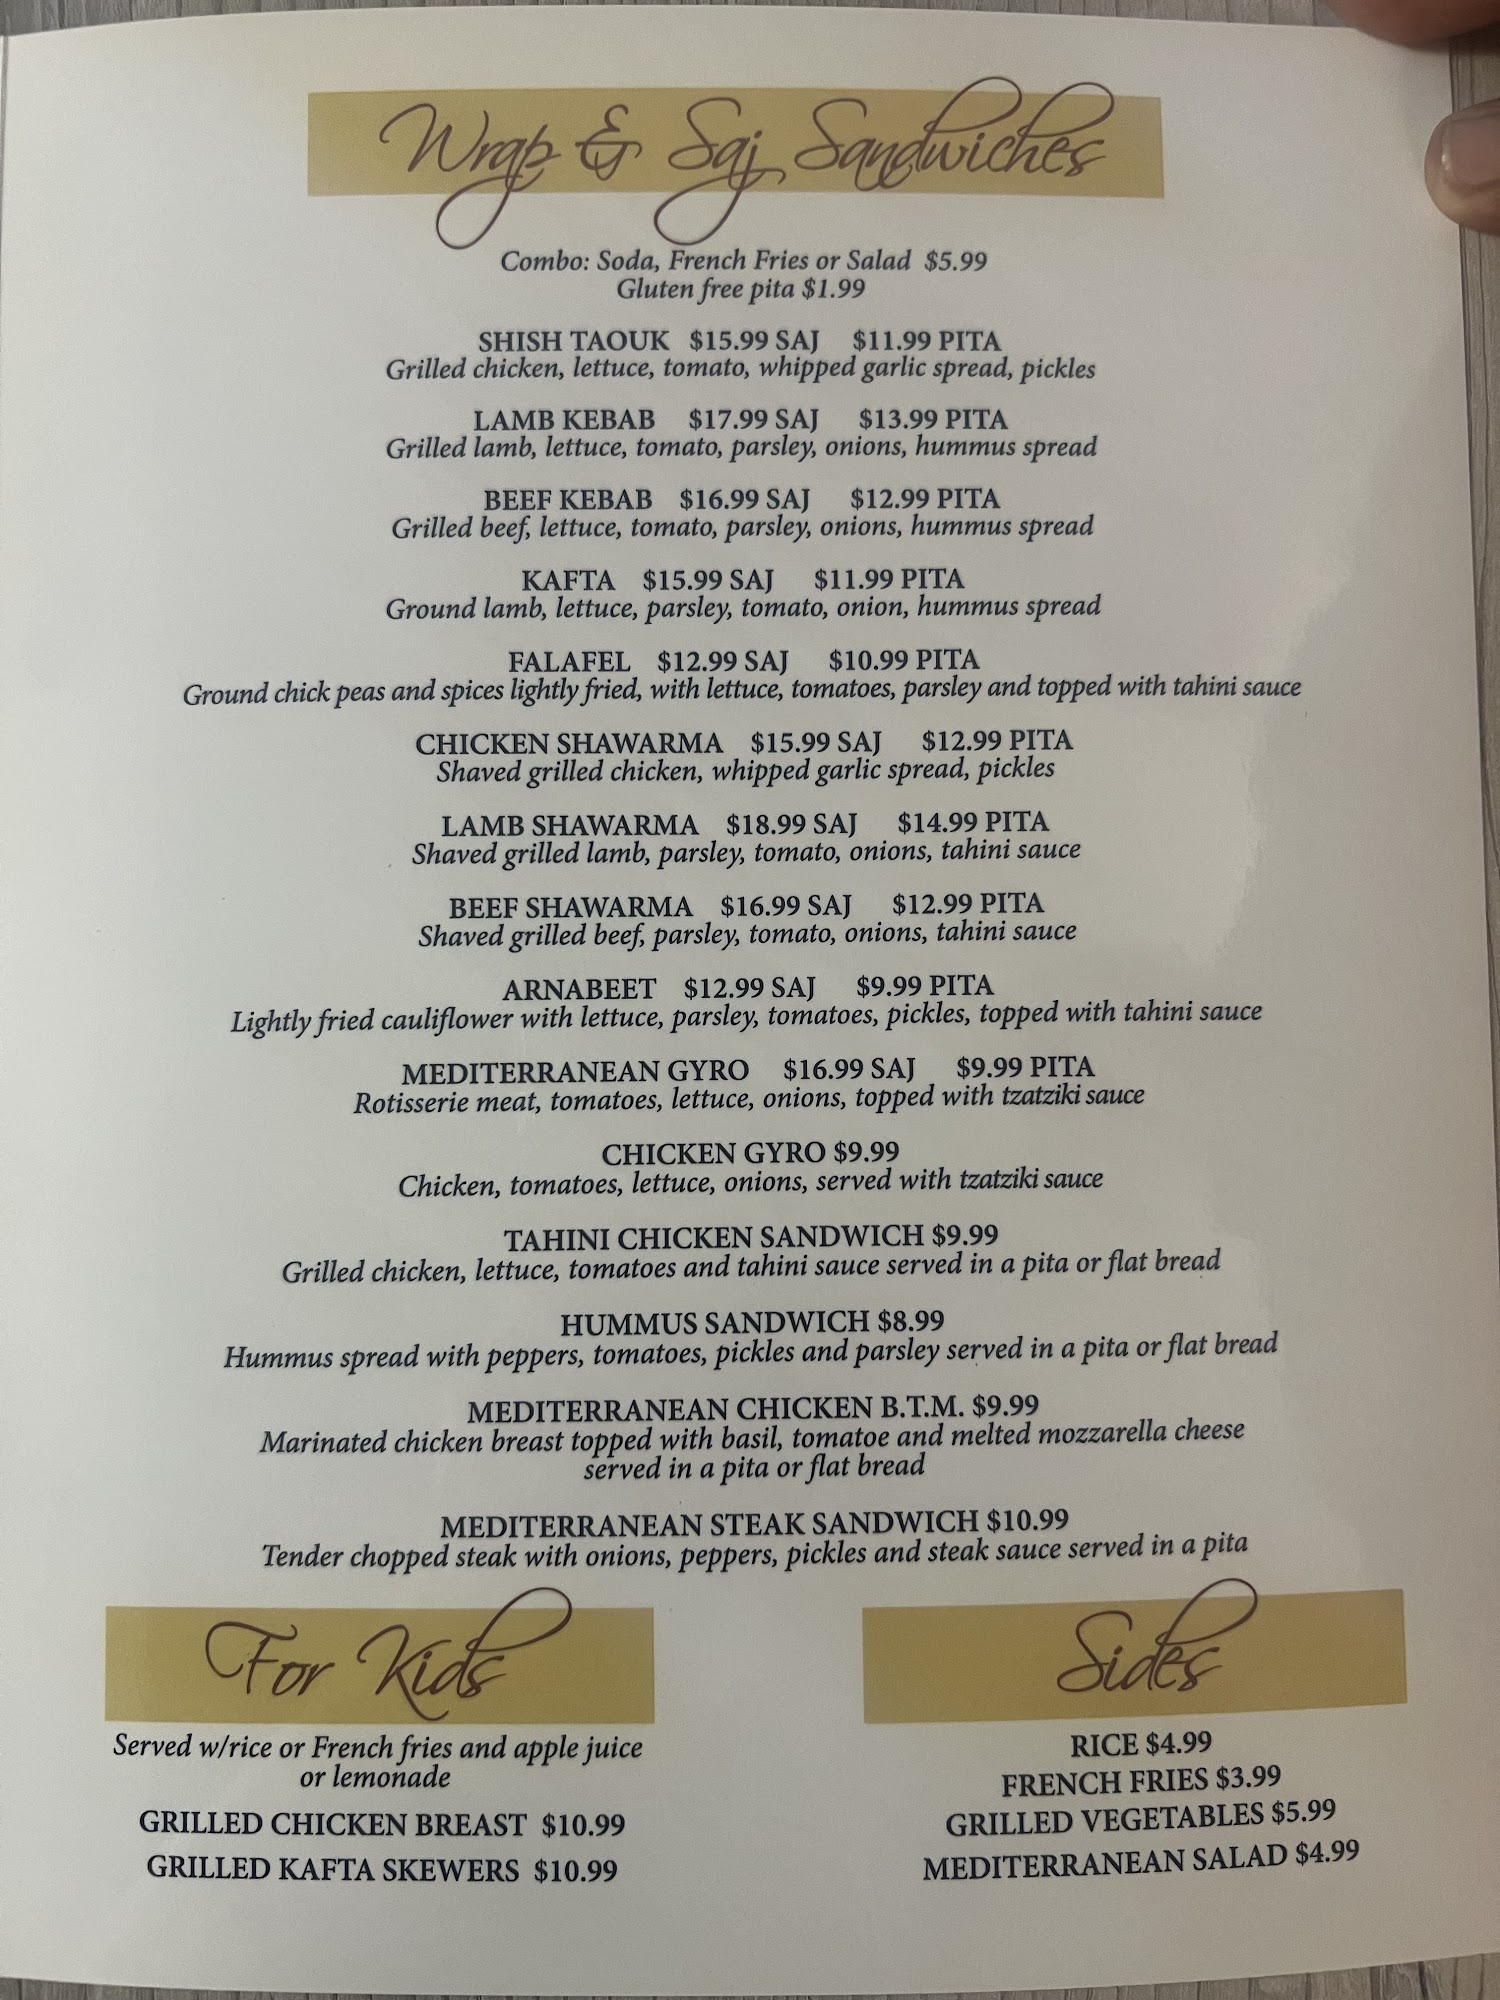 Wrap & Saj Sandwiches
Combo: Soda, French Fries or Salad $5.99
Gluten free pita $1.99
SHISH TAOUK $15.99 SAJ $11.99 PITA
Grilled chicken, lettuce, tomato, whipped garlic spread, pickles
LAMB KEBAB $17.99 SAJ $13.99 PITA
Grilled lamb, lettuce, tomato, parsley, onions, hummus spread
BEEF KEBAB $16.99 SAJ $12.99 PITA
Grilled beef, lettuce, tomato, parsley, onions, hummus spread
KAFTA $15.99 SAJ $11.99 PITA
Ground lamb, lettuce, parsley, tomato, onion, hummus spread
FALAFEL $12.99 SAJ $10.99 PITA
Ground chick peas and spices lightly fried, with lettuce, tomatoes, parsley and topped with tahini sauce
CHICKEN SHAWARMA $15.99 SAJ $12.99 PITA
Shaved grilled chicken, whipped garlic spread, pickles
LAMB SHAWARMA $18.99 SAJ $14.99 PITA
Shaved grilled lamb, parsley, tomato, onions, tahini sauce
BEEF SHAWARMA $16.99 SAJ $12.99 PITA
Shaved grilled beef, parsley, tomato, onions, tahini sauce
ARNABEET $12.99 SAJ $9.99 PITA
Lightly fried cauliflower with lettuce, parsley, tomatoes, pickles, topped with tahini sauce
MEDITERRANEAN GYRO $16.99 SAJ $9.99 PITA
Rotisserie meat, tomatoes, lettuce, onions, topped with tzatziki sauce
CHICKEN GYRO $9.99
Chicken, tomatoes, lettuce, onions, served with tzatziki sauce
TAHINI CHICKEN SANDWICH $9.99
Grilled chicken, lettuce, tomatoes and tahini sauce served in a pita or flat bread
HUMMUS SANDWICH $8.99
Hummus spread with peppers, tomatoes, pickles and parsley served in a pita or flat bread
MEDITERRANEAN CHICKEN B.T.M. $9.99
Marinated chicken breast topped with basil, tomatoe and melted mozzarella cheese
served in a pita or flat bread
MEDITERRANEAN STEAK SANDWICH $10.99
Tender chopped steak with onions, peppers, pickles and steak sauce served in a pita
For Kids
Served w/rice or French fries and apple juice
or lemonade
GRILLED CHICKEN BREAST $10.99
GRILLED KAFTA SKEWERS $10.99
Sides
RICE $4.99
FRENCH FRIES $3.99
GRILLED VEGETABLES $5.99
MEDITERRANEAN SALAD $4.99